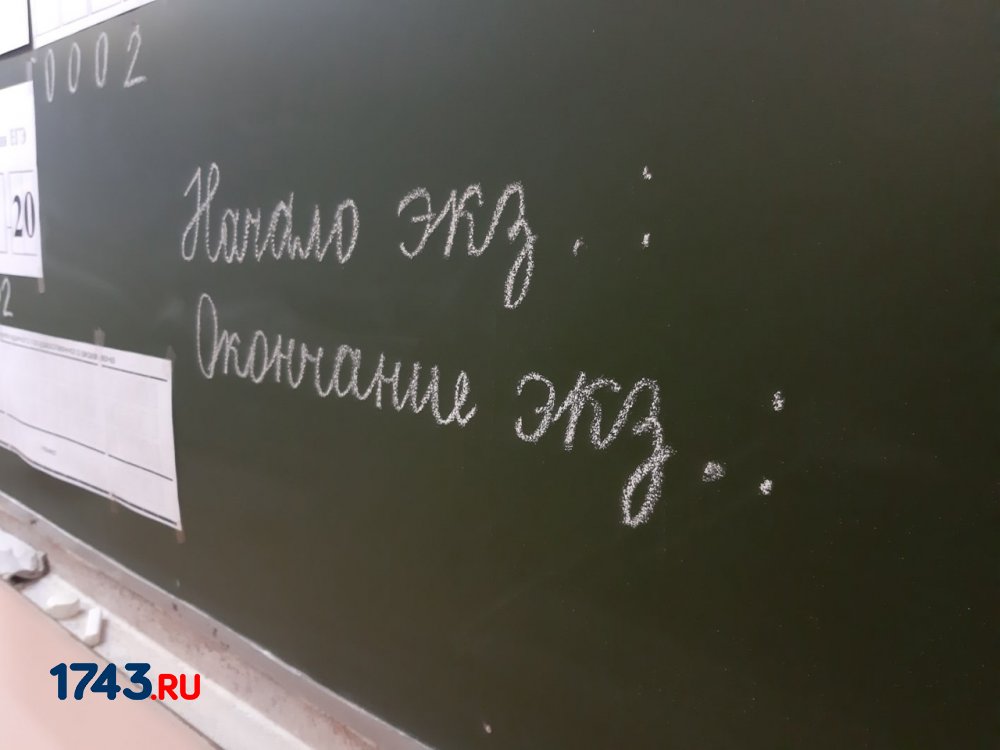 0002
ЕГЭ
20
2
Начало экз.:
Окончание экз.:
1743.RU